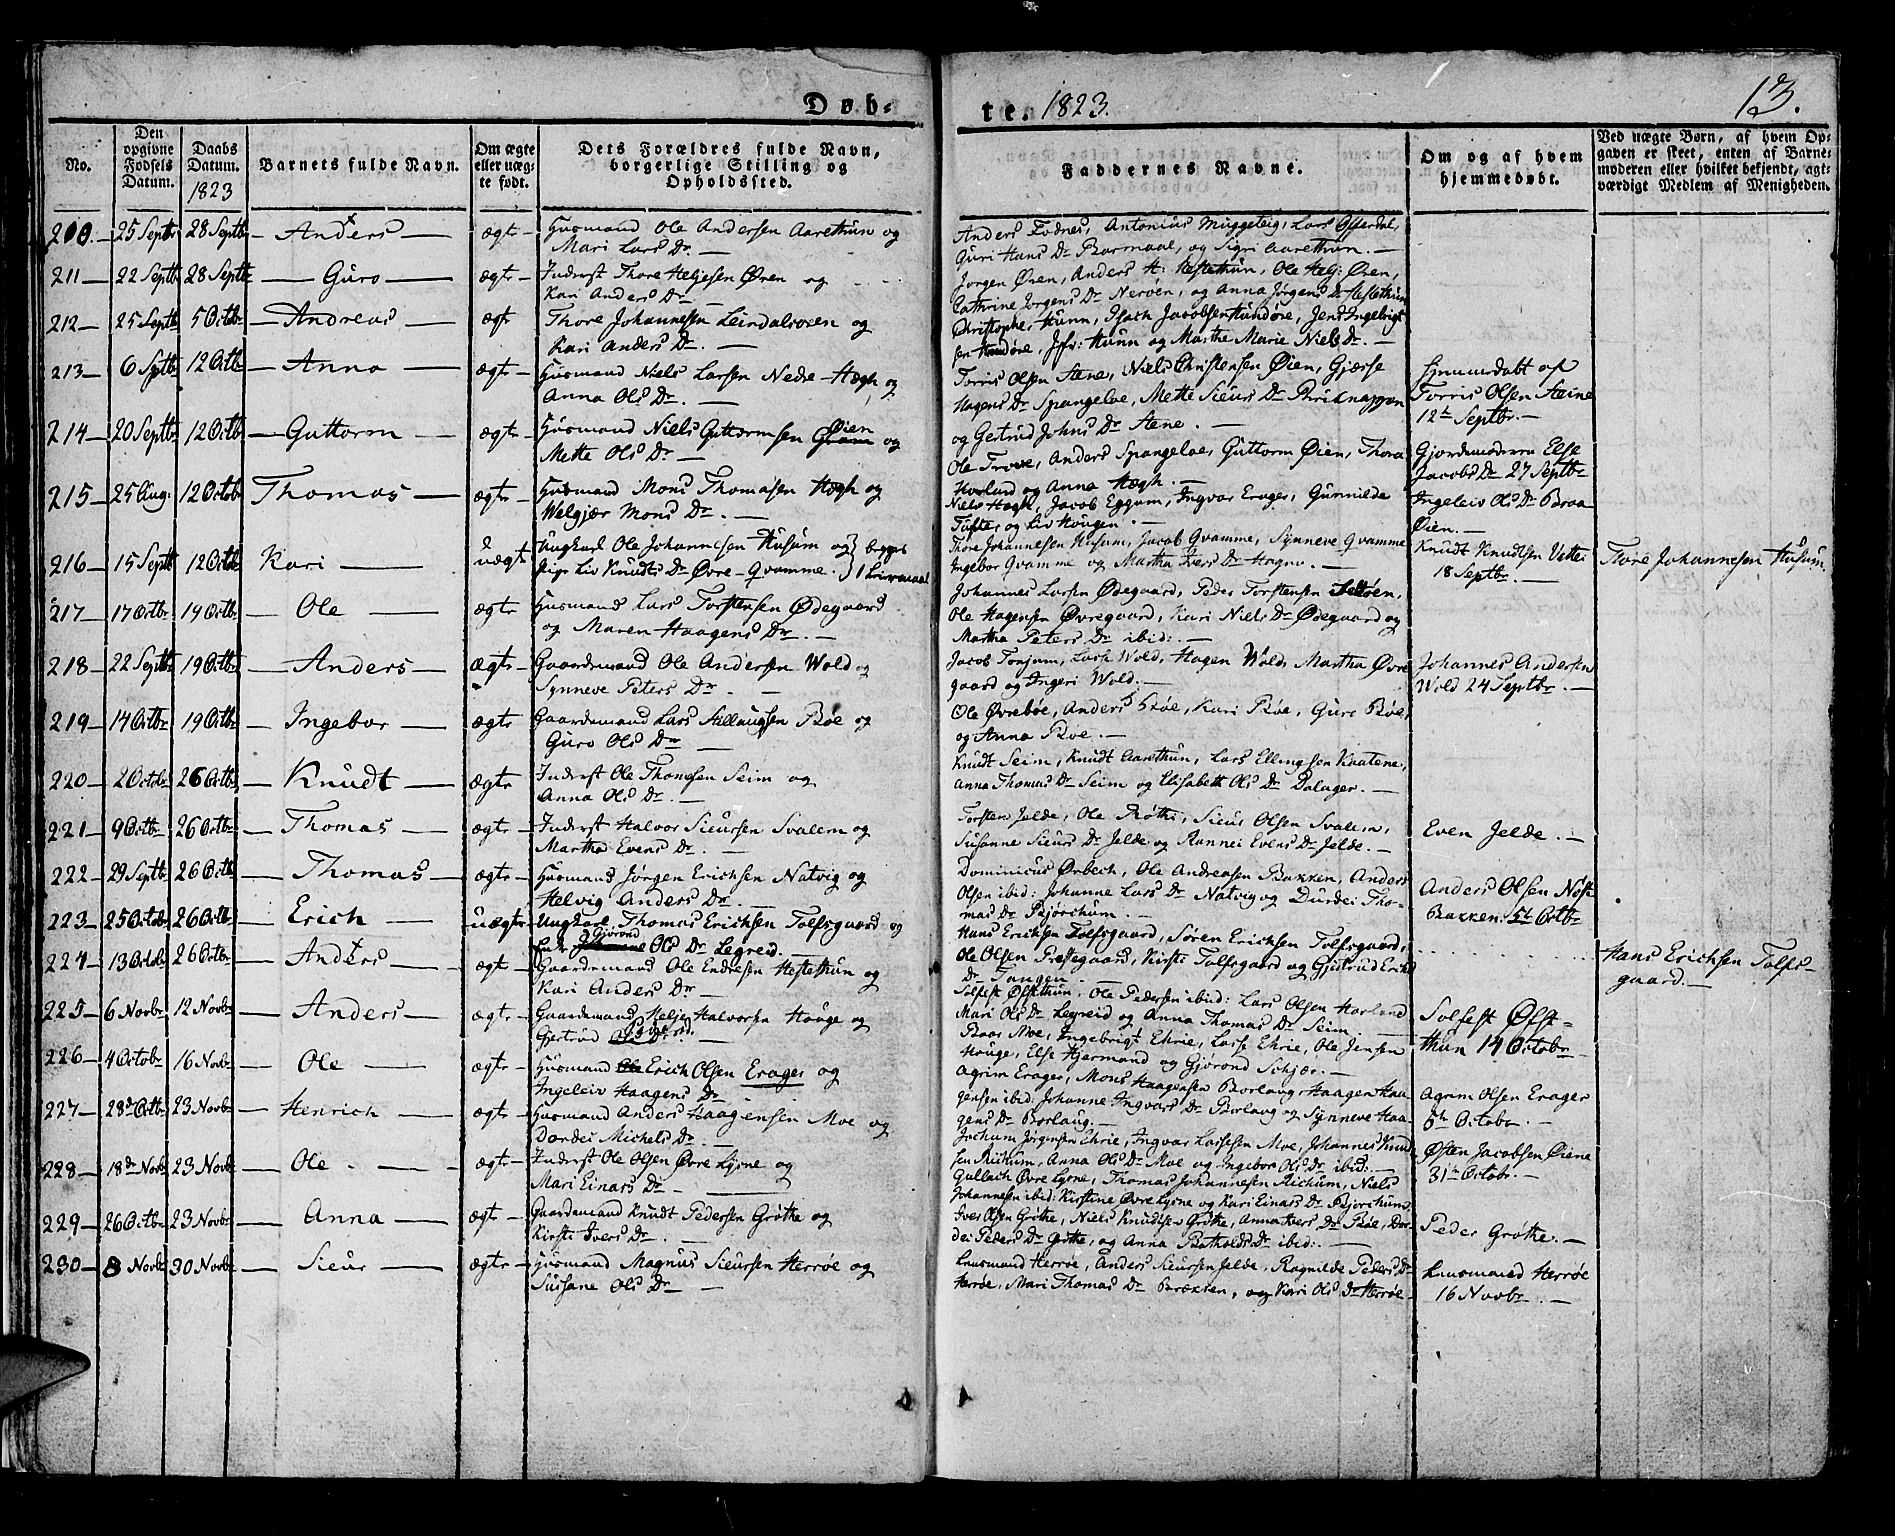 Døb-
te. 1823.
13.
No.
Den opgivne Fødsels Datum.
Daabs Datum. 1823
Barnets fulde Navn.
Om ægte eller uægte født.
Dets Forældres fulde Navn, borgerlige Stilling og Opholdssted.
Faddernes Navne.
Om og af hvem hjemmedøbt.
Ved uægte Børn, af hvem Opgaven er skeet, enten af Barnemoderen eller hvilket bekjendt, agtværdigt Medlem af Menigheden.
210. 25 Septbr 28 Septbr Anders ægte Huusmand Ole Andersen Aarethun og
Mari Lars Dr.
Anders Fodnes, Antonius Muggeteig, Lars
Guri Hans Dr Bormaal, og Sigri Aarethun.
211 22 Septbr 28 Septbr Guro ægte Inderst Thore Heljesen Øren og
Kari Anders Dr
Jørgen Øren, Anders H: Hestethun, Ole Helj: Øren,
Cathrine Jørgens Dr Nerøen, og Anna Jørgens Dr Hestethun
212 25 Septbr 5 Octbr Andreas ægte Thore Johannesen Leirdalsosen og
Kari Anders Dr.
Christopher Munn, Isach Jacobsen Hundere, Jens Ingebrigt
sen Hundere, Jfr: Munn og Marthe Marie Niels Dr.
213 6 Septbr 12 Octbr Anna ægte Huusmand Niels Larsen Nedre-Hægh og
Anna Ols Dr.
Torris Olsen Stene, Niels Christensen Øien, Gjærse
Hagens Dr Spangeloe, Mette Sieurs Dr
og Gertrud Johns Dr Stene.
Hjemmedøbt af
Torris Olsen Steine
12te Septbr.
214 20 Septbr 12 Octbr Guttorm ægte Huusmand Niels Guttormsen Øien og
Mette Ols Dr
Ole Troee, Anders Spangeloe, Guttorm Øien, Thora
Hovland og Anna Hægh.
Gjordemoderen Else
Jacobs Dr 27 Septbr
215 25 Aug. 12 Octobr Thomas ægte Huusmand Mons Thomasen Hægh og
Welgjær Mons Dr.
Niels Hægh, Jacob Eggum, Ingvar Erager, Gunnilde
Tufte, og Liv Hougen.
Ingeleiv Ols Dr Braa
Øien.
216 15 Septbr 12 Octbr Kari uægte Ungkarl Ole Johannesen Husum og } begges
Pige Liv Knudts Dr Øvre-Qvamme. } 1 Leiermaal
Thore Johannesen Husum, Jacob Qvamme, Synneve Qvamme
Ingebor Qvamme og Martha Ivers Dr Hagne.
Knudt Knudtsen Vette
18 Septbr.
Tore Johannesen Husum.
217 17 Octbr 19 Octbr Ole ægte Huusmand Lars Torstensen Ødegaard
og Maren Haagens Dr.
Johannes Larsen Ødegaard, Peder Torstensen
Ole Hagensen Øvregaard, Kari Niels Dr Ødegaard og
Martha Peters Dr ibid:.
218 22 Septbr 19 Octbr Anders ægte Gaardemand Ole Andersen Wold og
Synneve Peters Dr.
Jacob Tonjum, Lasse Wold, Hagen Wold, Martha Øvre
gaard og Ingeri Wold.
Johannes Andersen
Wold 24 Septbr.
219 14 Octbr 19 Octbr Ingebor ægte Gaardemand Lars Sillaugsen Bøe og
Guro Ols Dr
Ole Øvrebøe, Anders Bøe, Kari Bøe, Guro Bøe,
og Anna Bøe.
220 2 Octobr 26 Octbr Knudt ægte Inderst Ole Thomesen Seim og
Anna Ols Dr.
Knudt Seim, Knudt Aarethun, Lars Ellingsen Knatene,
Anna Thomas Dr Seim og Elisabeth Ols Dr Dalager.
221 9 Octbr 26 Octbr Thomas ægte Inderst Halvor Sieursen Svalem og
Martha Evens Dr.
Torsten Jelde, Ole Røthe, Sieur Olsen Svalem,
Susanne Sieurs Dr Jelde og Rannei Evens Dr Jelde.
Even Jelde.
222 29 Septbr 26 Octb Thomas ægte Huusmand Jørgen Erichsen Natvig og
Helvig Anders Dr.
Dominicus Ørbech, Ole Andreasen Bakken, Anders
Olsen ibid: Johanne Lars Dr Natvig og Durdei Tho-
mas Dr Bjørchum.
Anders Olsen
Bakken 5te Octbr
223 25 Octobr 26 Octb Erich uægte Ungkarl Thomas Erichsen Tolfsgaard og
Gjørond Ols Dr Legreid.
Hans Erichsen Tolfsgaard, Søren Erichsen Tolfsgaard,
Ole Olsen Prestegaard, Kirsti Tolfsgaard og Gjertrud Erichs
Dr Tangen.
Hans Erichsen Tolfs-
gaard.
224 13 Octobr 26 Octbr Anders ægte Gaardemand Ole Endresen Hestethun og
Kari Anders Dr
Solfest Øfstthun, Ole Pedersen ibid: Lars Olsen Horland
Mari Ols Dr Legreid og Anna Thomas Dr Seim.
Solfest Øfst-
thun 14 Octobr
225 6 Novbr 12 Novbr Anders ægte Gaardemand Helje Halvorsen Houge og
Gjertrud Peders Dr.
Boas Moe, Ingebrigt Ehrie, Lasse Ehrie, Ole Jensen
Houge, Else Hjermand og Gjørond Schjær.
226 4 Octobr 16 Novbr Ole ægte Huusmand Erich Olsen Erager og
Ingeleiv Haagens Dr
Agrim Erager, Mons Haagensen Borlaug, Haagen Haa-
gensen ibid: Johanne Ingvars Dr Borlaug og Synneve Haa-
gens Dr Borlaug.
Agrim Olsen Erager
5te Octobr.
227 28de Octbr 23 Novbr Henrich ægte Huusmand Anders Haagensen Moe og
Dordei Michels Dr.
Jochum Jørgensen Ehrie, Ingvar Lassesen Moe, Johannes Knud
sen Richum, Anna Ols Dr Moe og Ingebor Ols Dr ibid:
Østen Jacobsen Øiene
31te Octobr.
228 18de Novbr 23 Novbr Ole ægte Inderst Ole Olsen Øvre Lysne og
Mari Einars Dr
Gullach Øvre Lysne, Thomas Johannesen Richum, Niels
Johannesen ibid: Kirstine Øvre Lysne og Kari Einars Dr Bjørchum
229 26 Octbr 23 Novbr Anna ægte Gaardemand Knudt Pedersen Grøthe og
Kirsti Ivers Dr.
Iver Olsen Grøthe, Niels Knudtsen Grøthe, Anna Ivers Dr Bøe, Dor-
dei Peders Dr Grøthe, og Anna Botholds Dr ibid:.
Peder Grøthe.
230 8 Novbr 30 Novbr Sieur ægte Huusmand Magnus Sieursen Herrøe og
Susane Ols Dr
Knusmand Herrøe, Anders Sieursen Jelde, Ragnilde Peders Dr
Herrøe, Mari Thomas Dr Brækken, og Kari Ols Dr Herrøe
Knusmand Herrøe
16 Novbr.